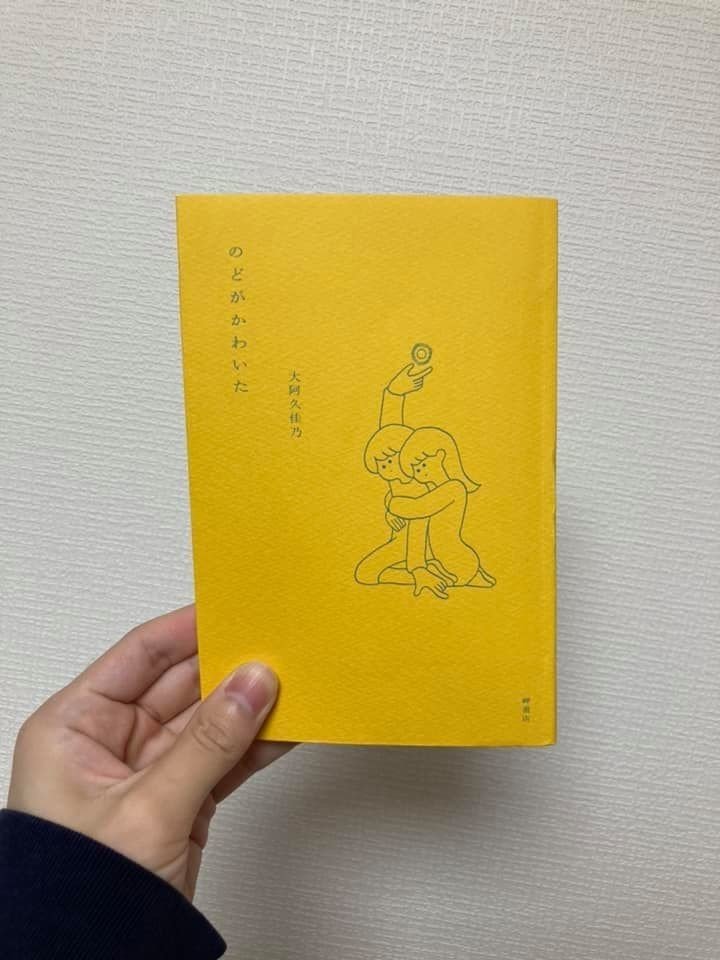 のどがかわいた
大阿久佳乃
岬書店